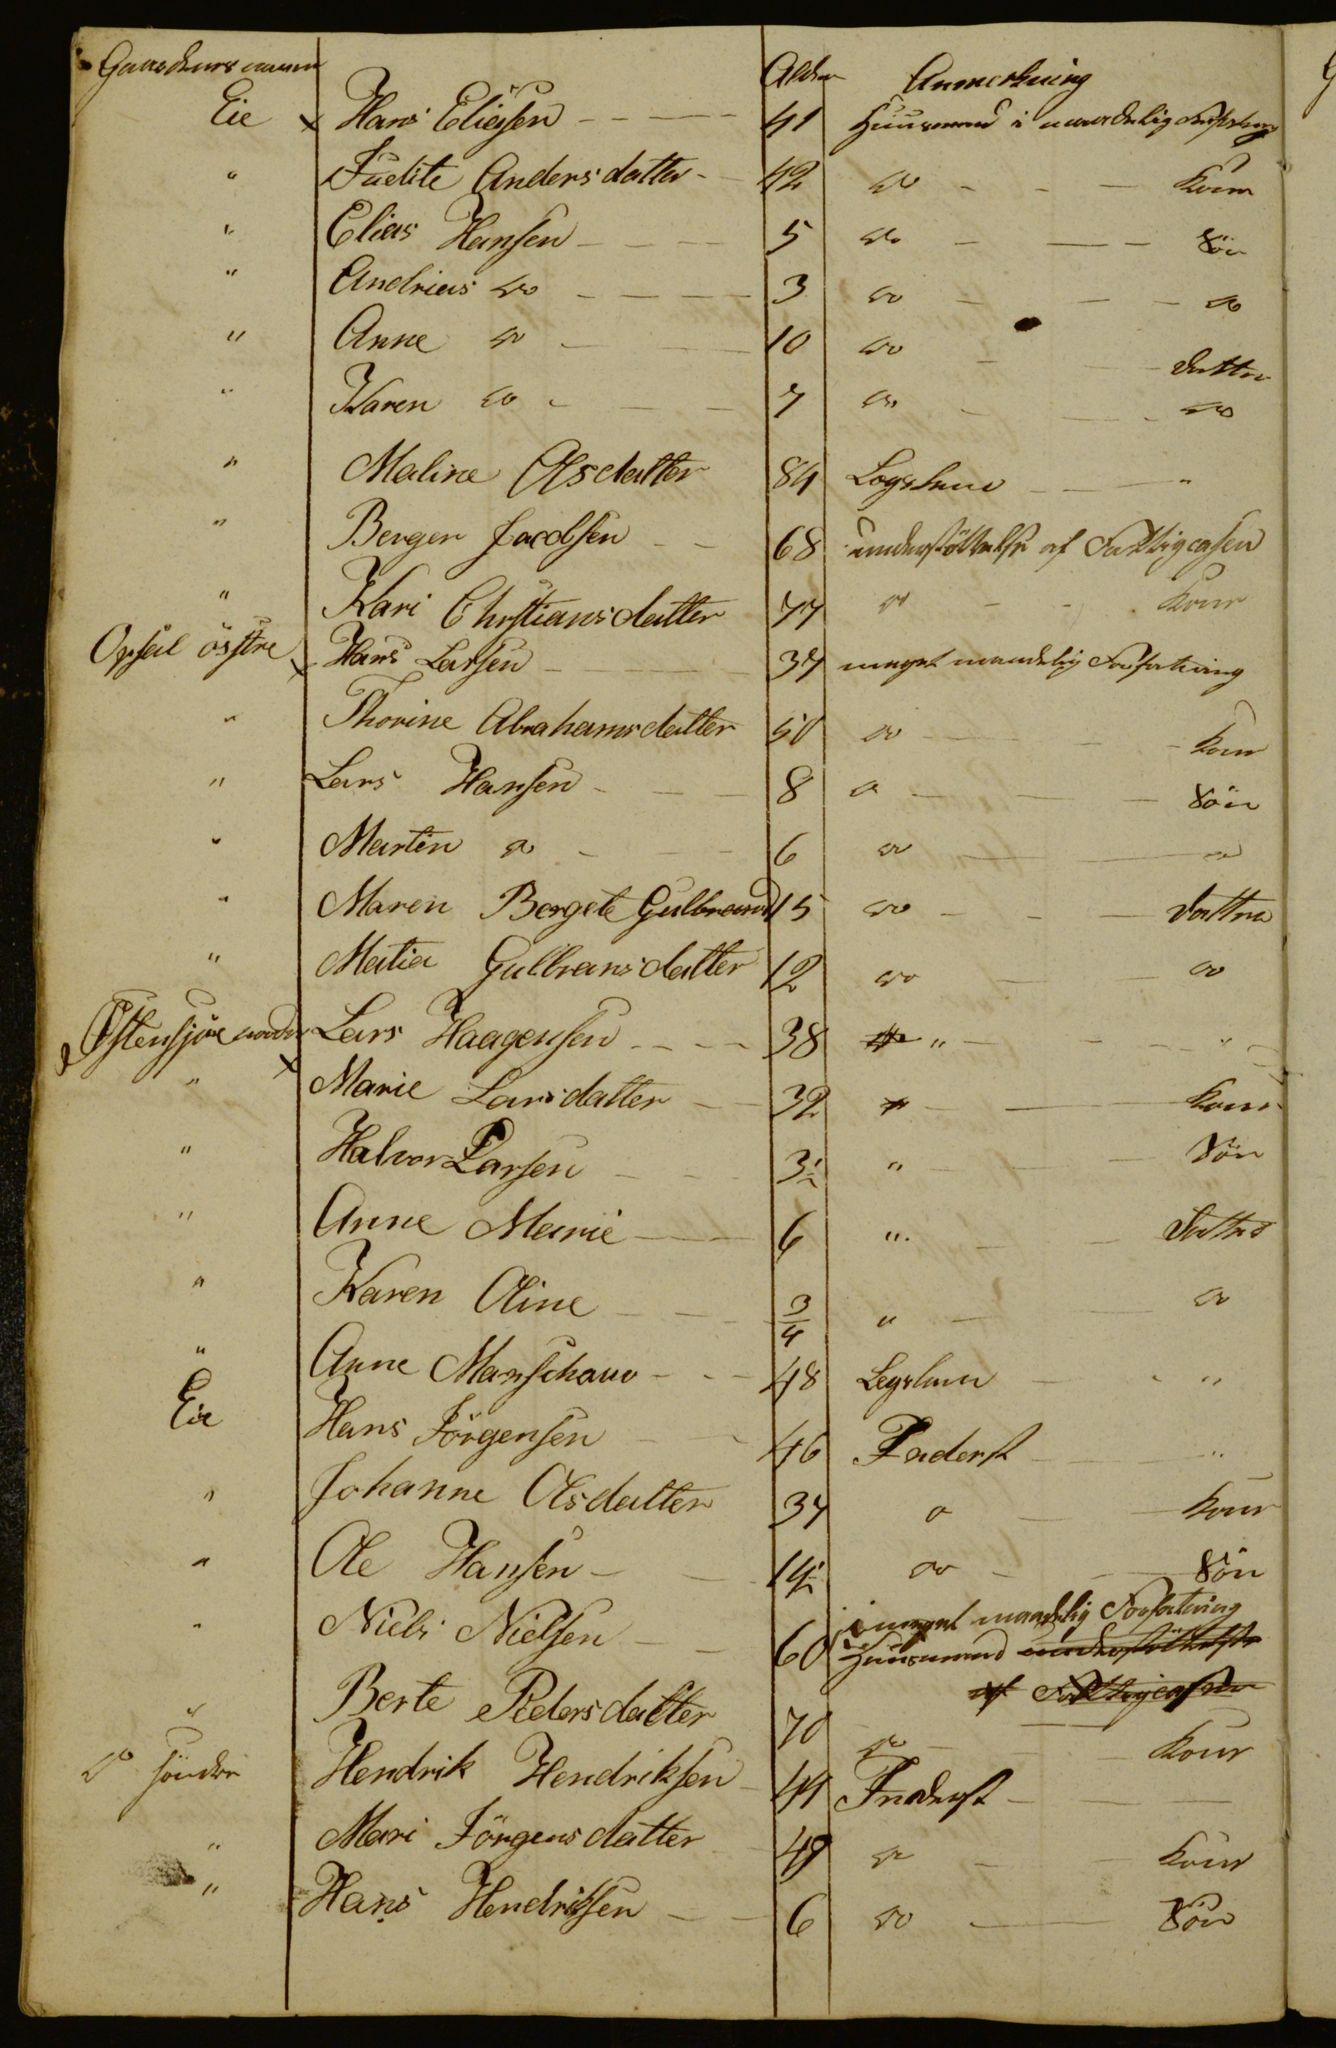 Gaardenes navne Alder Anmerkning
Eie x Hans Eliesen 41 Huusmand i maadelig Forfatning
" Judite Andersdatter 42 do Kone
" Elias Hansen 5 do Sön
" Andrias do 3 do do
" Anne do 10 do datter
" Karen do 7 do do
" Maline Olsdatter 84 Logslem "
" Berger Jacobsen 68 understöttelse af Fattigcassen
" Kari Chrstiansdatter 77 do Kone
Opsal östre x Hans Larsen 37 meget maadelig Forfatning
" Thorine Abrahamsdatter 50 do Kone
" Lars Hansen 8 do Sön
" Martin do 6 do do
" Maren Bergete Gulbrand 15 do dattre
" Matia Gulbransdatter 12 do do
Østensjöe x Lars Haagensen 38 " "
" Marie Larsdatter 32 Kone
" Halvor Larsen 3½ " Sön
" Anne Marie 6 " Datter
" Karen Oline 3/4 " do
" Anne Marschau 48 Legslem "
Eie Hans Jörgensen 46 Inderst "
" Johanne Olsdatter 37 do Kone
" Ole Hansen 14½ do Sön
" Niels Nielsen 60 i meget maadelig Forfatning
Huusmand understöttelse
af Fattigcassen
" Berte Pedersdatter 70 do Kone
do söndre Hendrik Hendriksen 44 Inderst
" Mari Jörgensdatter 49 do Kone
" Hans Hendriksen 6 do Sön